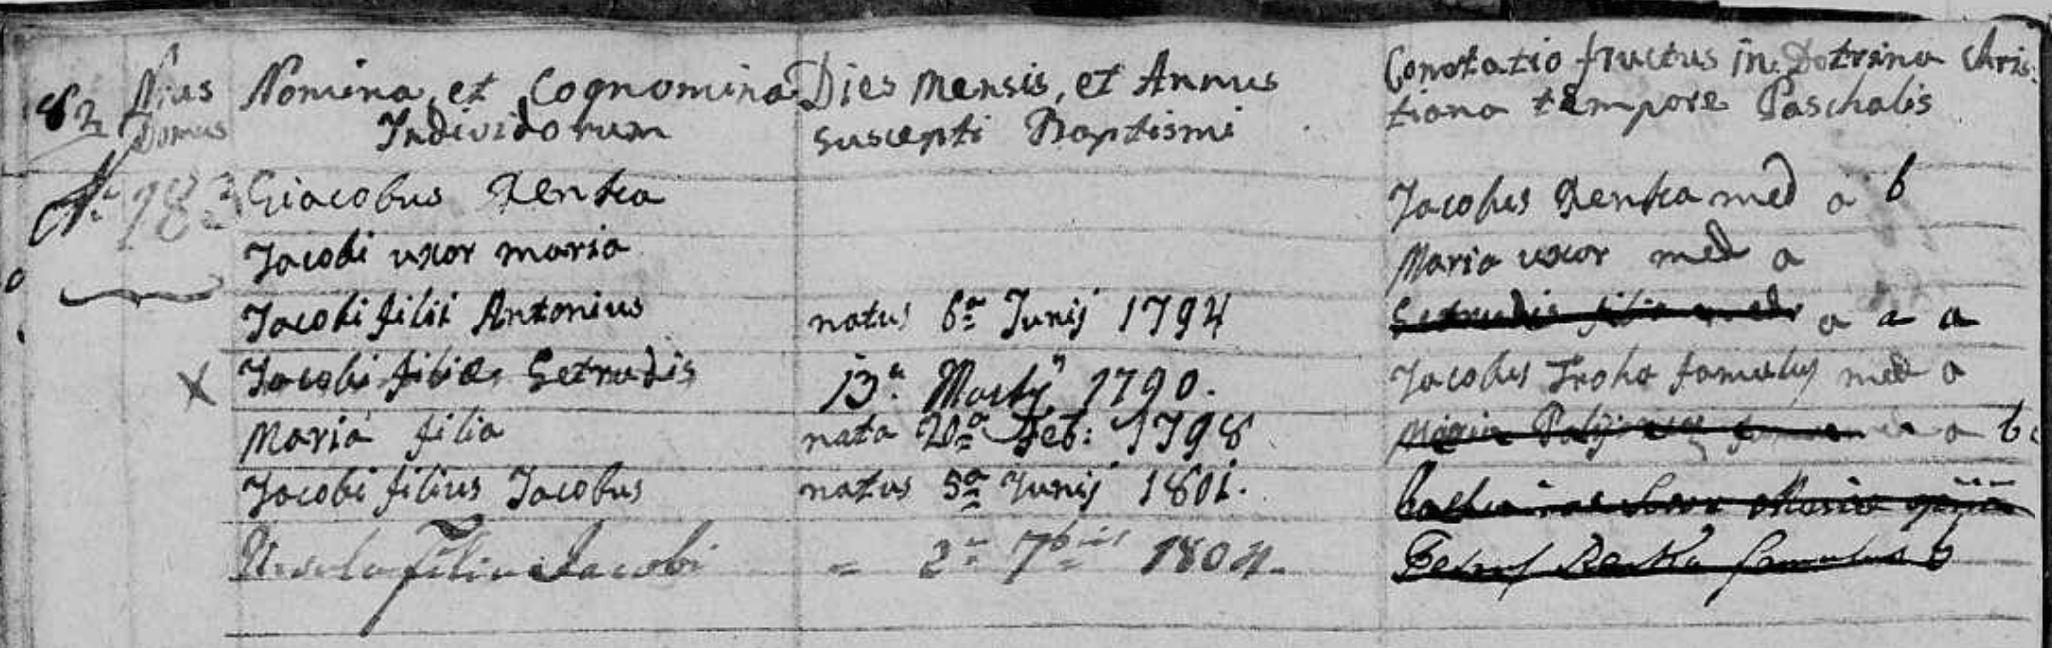 82 Nrus Domus
Nomina et Cognomina Individorum
Dies Mensis, et Annus suscepti Baptismi
Conotatio fructus in Dotrina Chris:
tiana tempore Paschalis
No. 183 Giacobus Renka
Jacobus Renka med a b
Jacobi uxor maria
Maria uxor med a
Jacobi filii Antonius natus 6a Junij 1794
Getrudis filia med a a a
X Jacobi filiæ Getrudis 13a Martij 1790.
Jacobus Troha famulus med a
Maria filia nata 20a Feb: 1798
Maria a b
Jacobi filius Jacobus natus 5a Junij 1801.
Maria
Ursula filia Jacobi = 2a 7bris 1804.
Petrus Renka famulus b